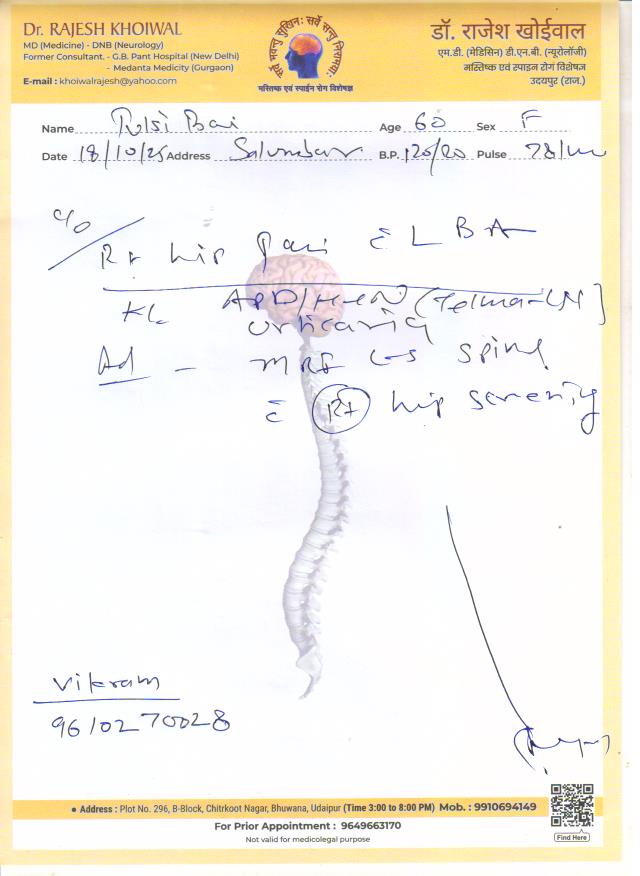 Dr. RAJESH KHOIWAL
MD (Medicine) - DNB (Neurology)
Former Consultant. - G.B. Pant Hospital (New Delhi)
- Medanta Medicity (Gurgaon)
E-mail : khoiwalrajesh@yahoo.com
सर्वे भवन्तु सुखिनः सर्वे सन्तु निरामयाः
मस्तिष्क एवं स्पाईन रोग विशेषज्ञ
डॉ. राजेश खोईवाल
एम.डी. (मेडिसिन) डी.एन.बी. (न्यूरोलॉजी)
मस्तिष्क एवं स्पाइन रोग विशेषज्ञ
उदयपुर (राज.)
Name Tulsi Bai Age 60 Sex F
Date 18/10/25 Address Salumbar B.P. 120/80 Pulse 78/m
C/O
Rt hip pain c̄ L B A
K/c APD/HTN (Telma-LN)
urticaria
Ad - MRI LS spine
c̄ Rt hip screening
Vikram
9610270028
• Address : Plot No. 296, B-Block, Chitrkoot Nagar, Bhuwana, Udaipur (Time 3:00 to 8:00 PM) Mob. : 9910694149
For Prior Appointment : 9649663170
Not valid for medicolegal purpose
Find Here